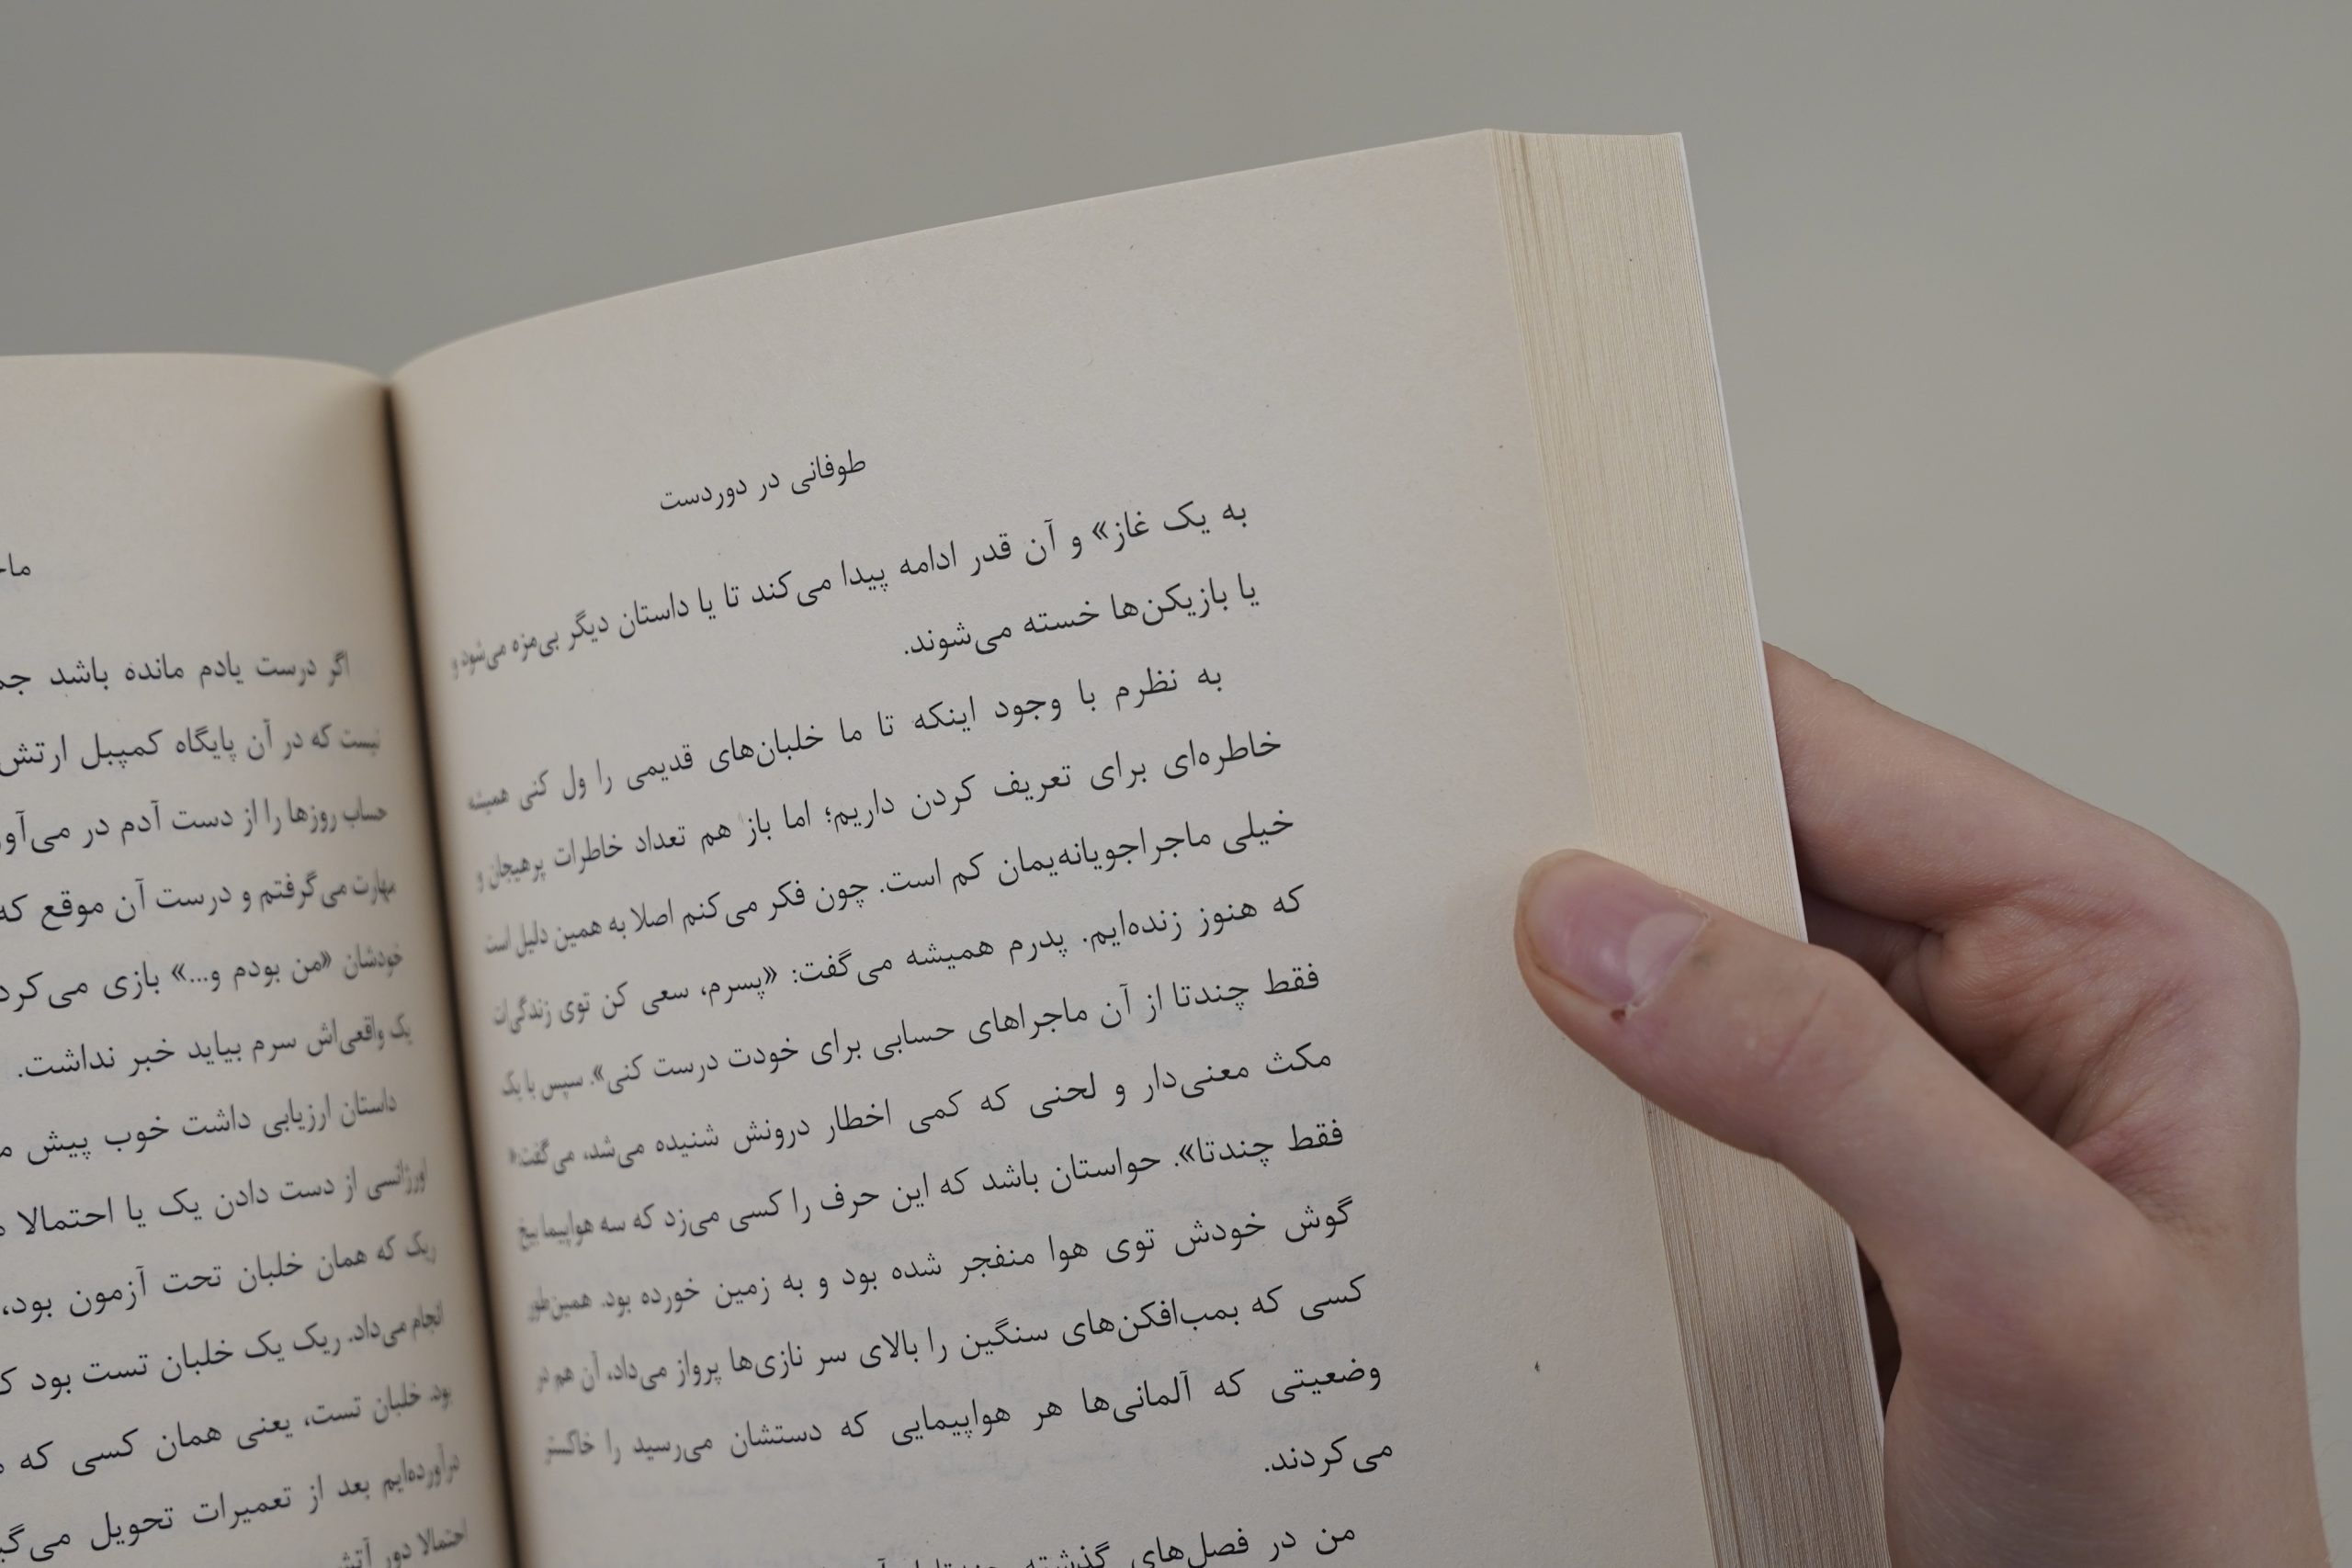 طوفانی در دوردست
به یک غاز» و آن قدر ادامه پیدا می‌کند تا یا داستان دیگر بی‌مزه می‌شود و
یا بازیکن‌ها خسته می‌شوند.
به نظرم با وجود اینکه تا ما خلبان‌های قدیمی را ول کنی همیشه
خاطره‌ای برای تعریف کردن داریم؛ اما باز هم تعداد خاطرات پرهیجان و
خیلی ماجراجویانه‌یمان کم است. چون فکر می‌کنم اصلا به همین دلیل است
که هنوز زنده‌ایم. پدرم همیشه می‌گفت: «پسرم، سعی کن توی زندگی‌ات
فقط چندتا از آن ماجراهای حسابی برای خودت درست کنی». سپس با یک
مکث معنی‌دار و لحنی که کمی اخطار درونش شنیده می‌شد، می‌گفت: «
فقط چندتا». حواستان باشد که این حرف را کسی می‌زد که سه هواپیما بیخ
گوش خودش توی هوا منفجر شده بود و به زمین خورده بود. همین‌طور
کسی که بمب‌افکن‌های سنگین را بالای سر نازی‌ها پرواز می‌داد، آن هم در
وضعیتی که آلمانی‌ها هر هواپیمایی که دستشان می‌رسید را خاکستر
می‌کردند.
من در فصل‌های گذشته
اگر درست یادم مانده باشد
نیست که در آن پایگاه کمپبل ارتش
حساب روزها را از دست آدم در
مهارت می‌گرفتم و درست آن موقع که
خودشان «من بودم و...» بازی
یک واقعی‌اش سرم بیاید خبر نداشت.
داستان ارزیابی داشت خوب پیش
اورژانسی از دست دادن یک یا احتمالا
ریک که همان خلبان تحت آزمون بود،
انجام می‌داد. ریک یک خلبان تست بود
بود. خلبان تست، یعنی همان کسی که
درآورده‌ایم بعد از تعمیرات تحویل
احتمالا دور